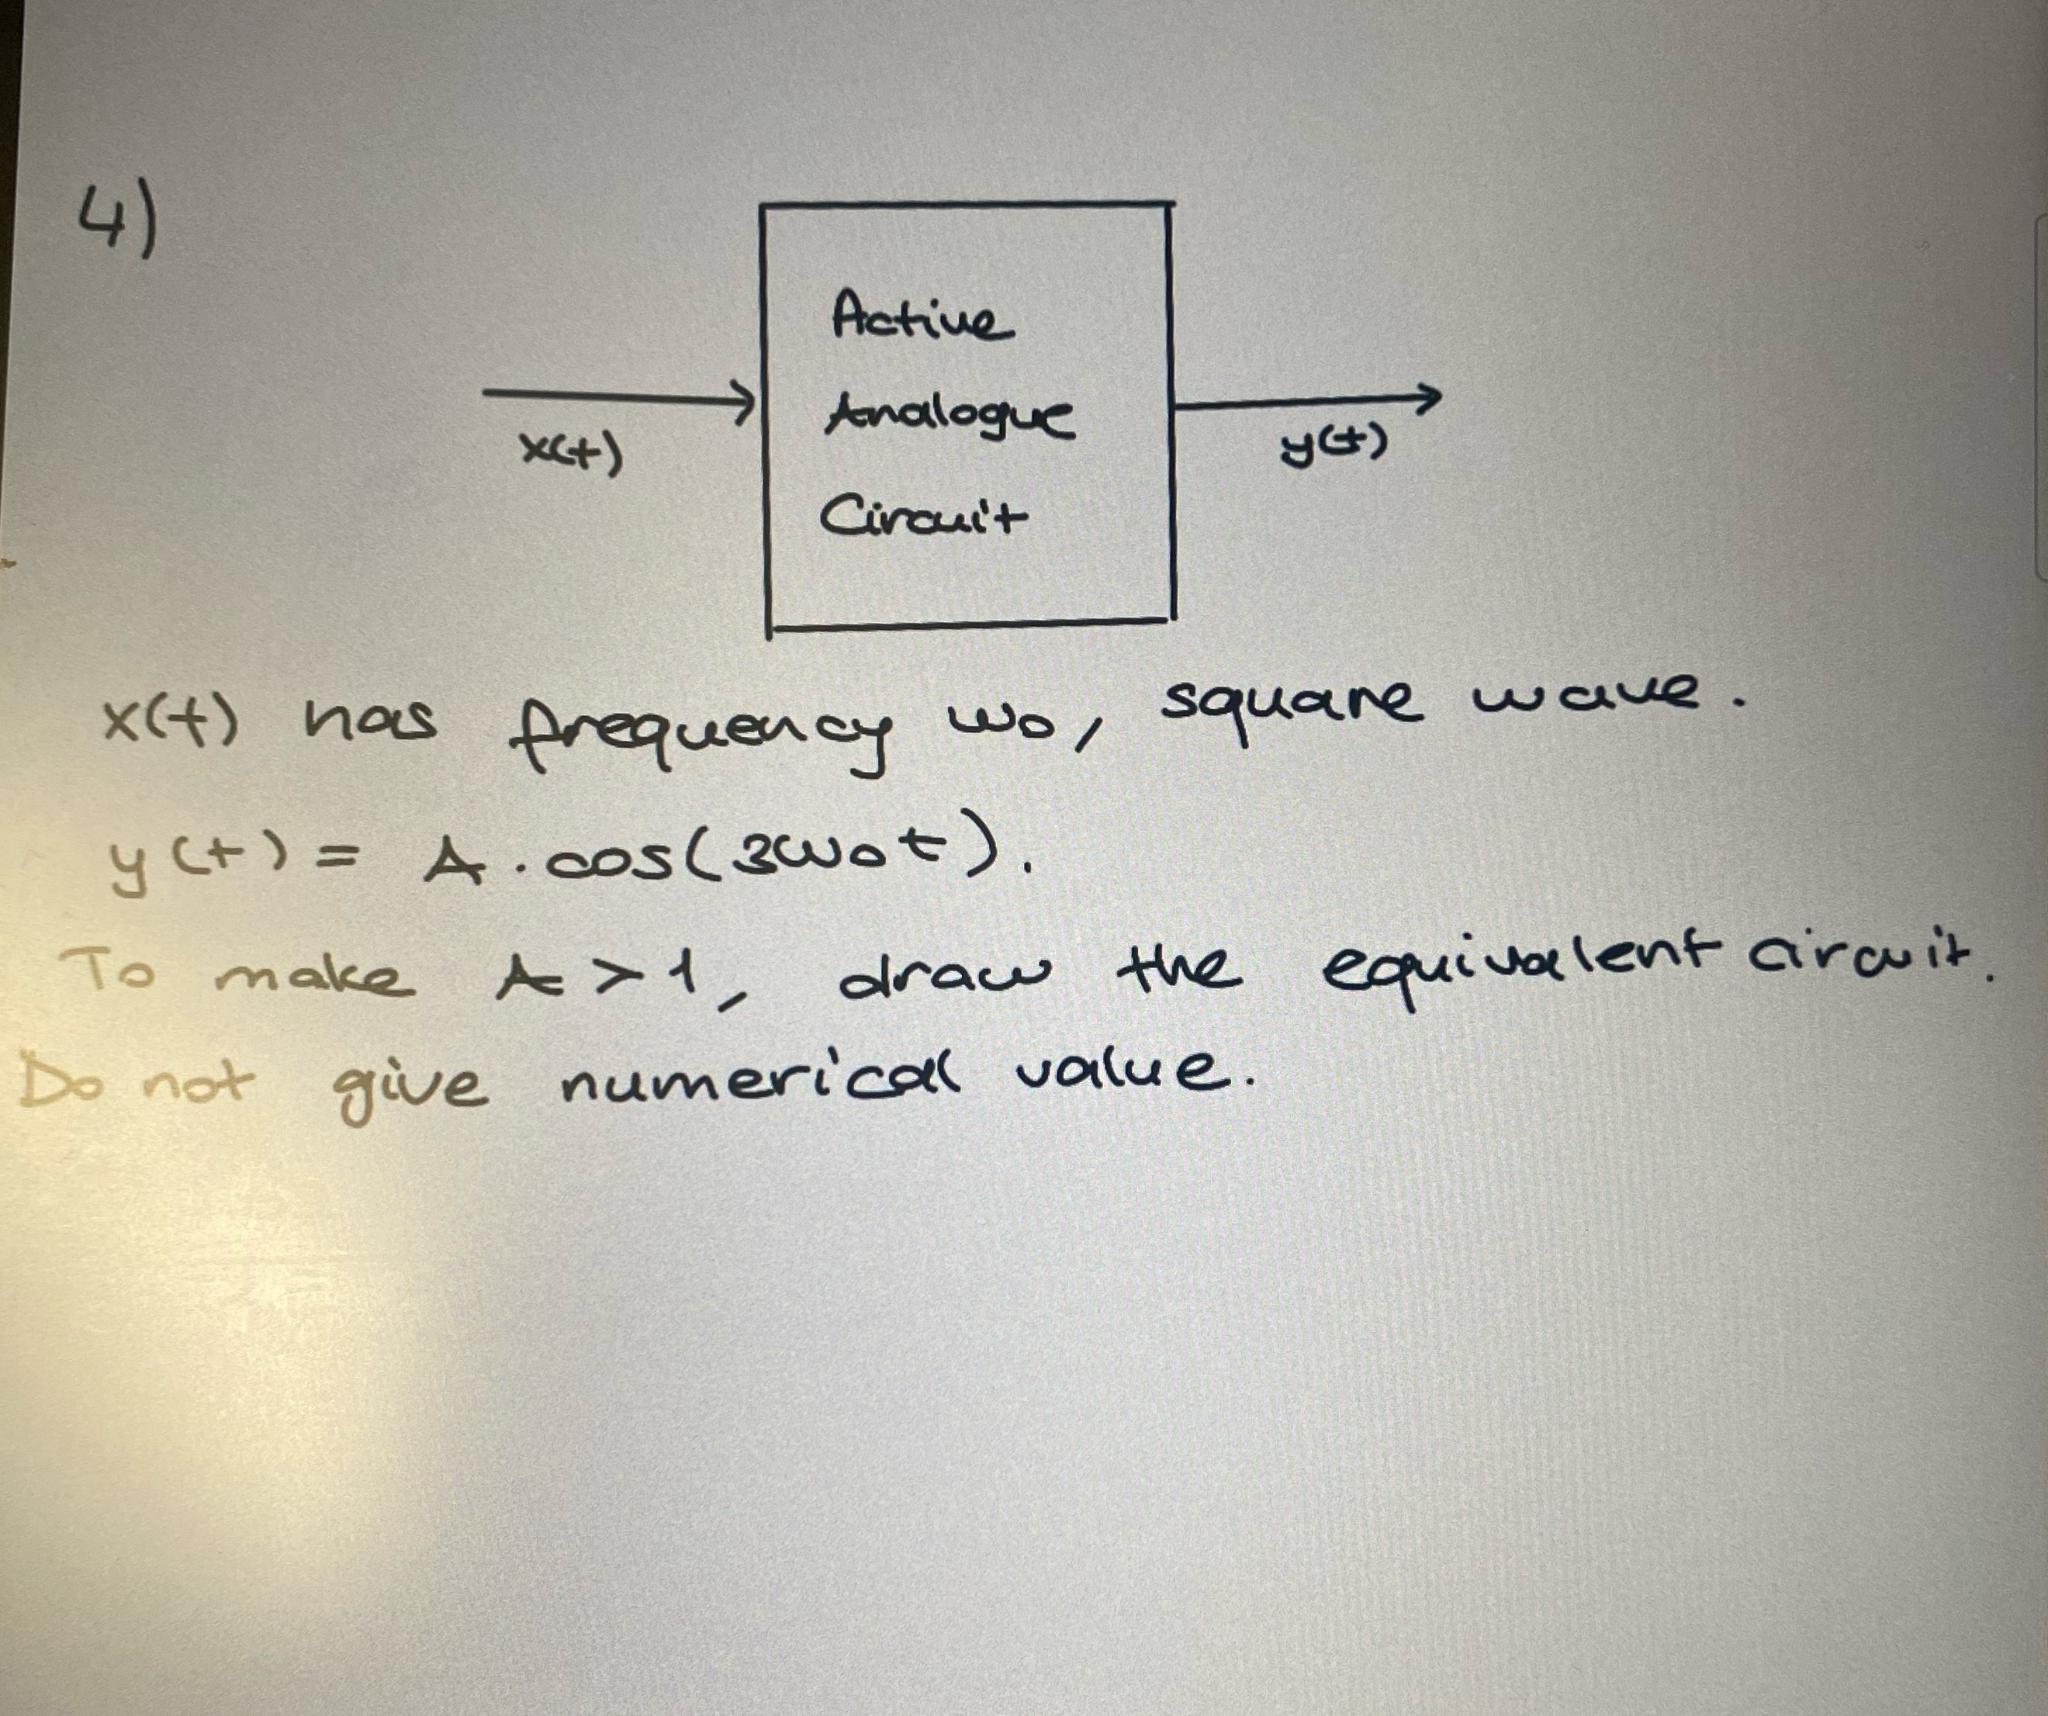 4)
Active
Analogue
Circuit
x(t)
y(t)
x(t) has frequency ωo, square wave.
y(t) = A . cos(3ωot).
To make A > 1, draw the equivalent circuit.
Do not give numerical value.